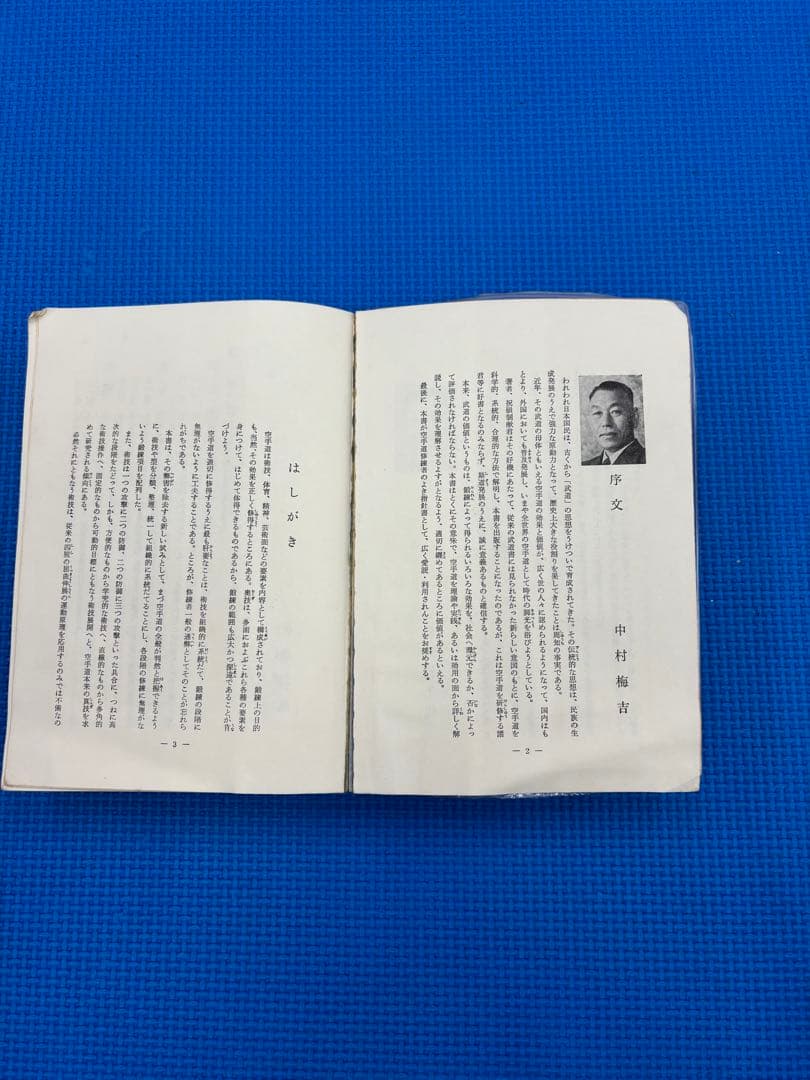 序文
中村梅吉
われわれ日本国民は、古くから「武道」の思想をうけついで育成されてきた。その伝統的な思想は、民族の生
成発展のうえで強力な原動力となって、歴史上大きな役割りを果してきたことは周知の事実である。
近年、その武道の母体ともいえる空手道の効果と価値が、広く世の人々に認められるようになって、国内はも
とより、外国においても普及発展し、いまや全世界の空手道として時代の脚光を浴びようとしている。
著者、祝嶺制献君はその好機にあたって、従来の武道書には見られなかった新らしい意図のもとに、空手道を
科学的、系統的、合理的な方法で解明し、本書を出版することになったのであるが、これは空手道を研修する諸
君等に好書となるのみならず、斯道発展のうえに、誠に意義あるものと確信する。
本来、武道の価値というものは、鍛練によって得られるいろいろな効果を、社会へ還元できるか、否かによっ
て評価されなければならない。本書はとくにその意味で、空手道を理論や実践、あるいは効用の面から詳しく解
説し、その効果を理解させるよすがとなるよう、適切に纒めてあるところに価値があるといえる。
最後に、本書が空手道修練者のよき指針書として、広く愛読・利用されんことをお奨めする。
— 2 —
はしがき
空手道は術技、体育、精神、芸術面などの要素を内容として構成されており、鍛練上の目的
も、当然、その効果を正しく修得するところにある。奥技は、多面におよぶこれら各種の要素を
身につけて、はじめて体得できるものであるから、鍛練の範囲も広大かつ深遠であることが肯
づけよう。
空手道を適切に修得するうえに最も肝要なことは、術技を組織的に系統だて、鍛練の段階に
無理がないように工夫することである。ところが、修練者一般の通弊としてそのことが忘れら
れがちである。
本書は、その弊害を除去する新しい試みとして、まづ空手道の全般が判然と把握できるよう
に、術技や型を分類、整理、統一して組織的に系統だてることにし、各段階の修練に無理がな
いよう鍛練項目を配列した。
また、術技は一つの攻撃に二つの防禦、二つの防禦に三つの攻撃といった具合に、つねに高
次的な段階をたどって、しかも、方便的なものから学究的な術技へ、直線的なものから多角的
な術技操作へ、固定的なものから可動的目標にともなう術技展開へと、空手道本来の真技を求
めて研究される傾向にある。
必然それにともなう術技は、従来の四肢の屈曲伸展の運動原理を応用するのみでは不備なの
— 3 —